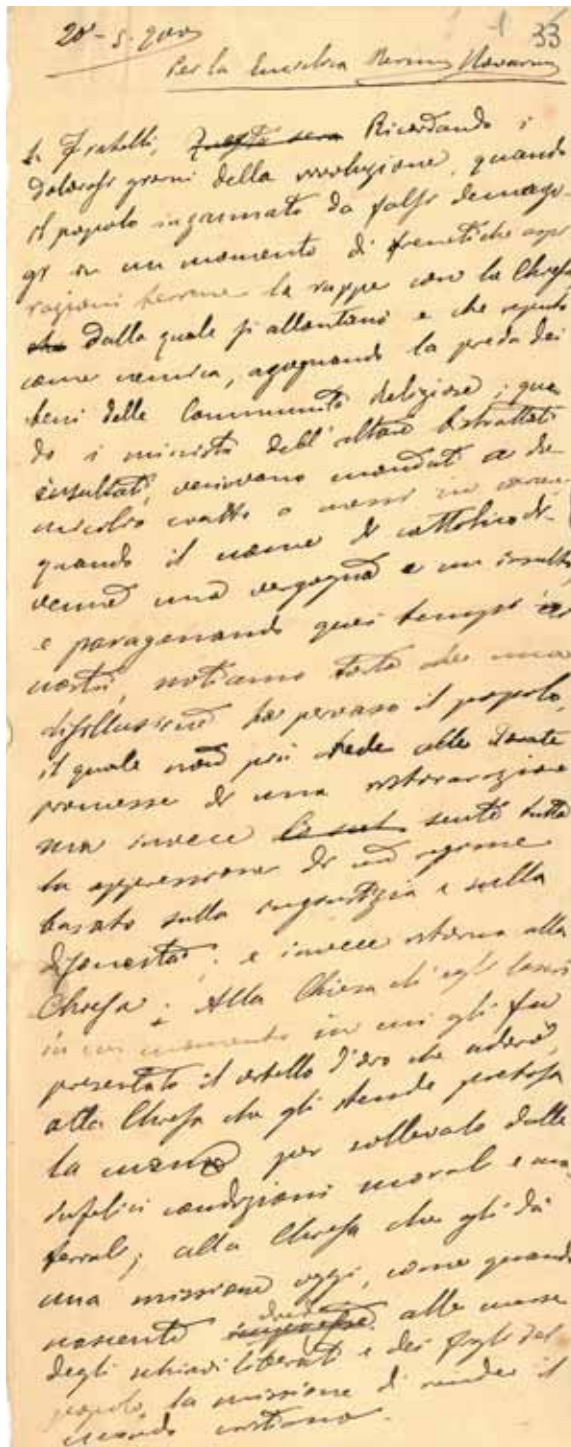 20-5-900
33
Per la Enciclica Rerum Novarum
Fratelli, Questa sera Ricordando i
dolorosi giorni della rivoluzione, quando
il popolo ingannato da falsi demago-
gi in un momento di frenetiche aspi
razioni terrene la ruppe con la Chiesa
che dalla quale si allontanò e che reputò
come nemica, agognando la preda dei
beni delle Communità Religiose; quan
do i ministri dell'altare bistrattati
insultati, venivano mandati a do
micilio coatto o messi in carcere,
quando il nome di cattolico di-
venne una vergogna e un insulto,
e paragonando quei tempi ai
nostri, notiamo tosto che una
disillusione ha pervaso il popolo,
il quale non più crede alle
promesse di una ristorazione
ma invece sente tutta
la oppressione di un regime
basato sulla ingiustizia e sulla
disonestà; e invece ritorna alla
Chiesa; Alla Chiesa ch'egli lasciò
in un momento in cui gli fu
presentato il vitello d'oro che adorò,
alla Chiesa che gli stende pietosa
la mano per sollevarlo dalle
infelici condizioni morali e ma
teriali; alla Chiesa che gli dà
una missione oggi, come quando
nascente diede alle masse
degli schiavi liberati e dei figli del
popolo, la missione di render il
mondo cristiano.